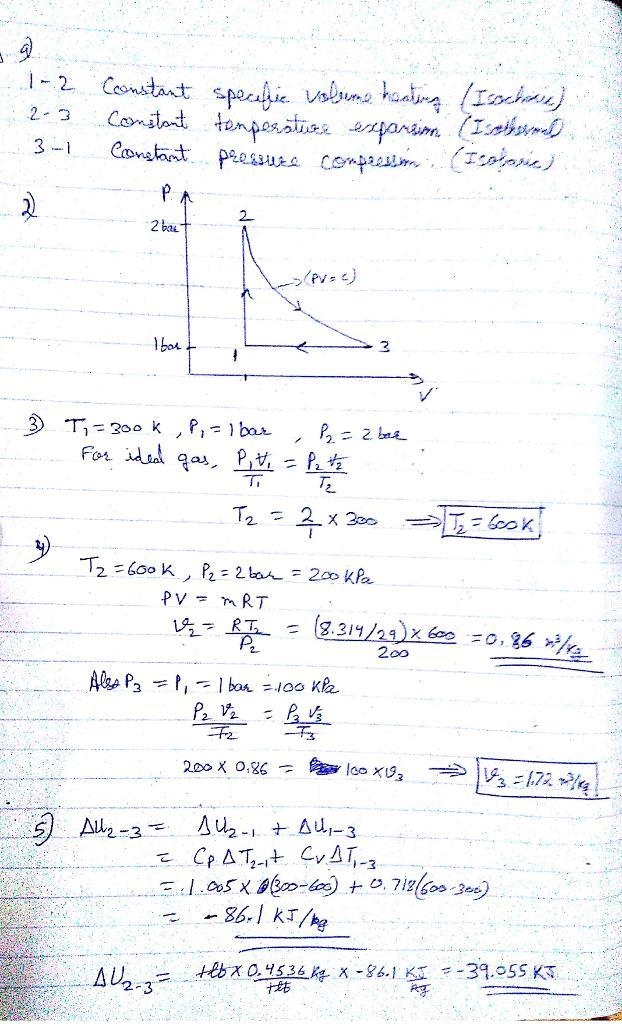 1)
1-2 Constant specific volume heating (Isochoric)
2-3 Constant temperature expansion (Isothermal)
3-1 Constant pressure compression. (Isobaric)
2)
P
2 bar
2
(PV=C)
1 bar
1
3
V
3) T₁ = 300 K , P₁ = 1 bar , P₂ = 2 bar
For ideal gas, P₁V₁/T₁ = P₂V₂/T₂
T₂ = 2/1 x 300 ⟹ T₂ = 600 K
4)
T₂ = 600 K , P₂ = 2 bar = 200 KPa
PV = mRT
v₂ = RT₂/P₂ = (8.314/29) x 600/200 = 0.86 m³/kg
Also P₃ = P₁ = 1 bar = 100 KPa
P₂V₂/T₂ = P₃V₃/T₃
200 x 0.86 = 100 x v₃ ⟹ v₃ = 1.72 m³/kg
5) ΔU₂₋₃ = ΔU₂₋₁ + ΔU₁₋₃
= Cp ΔT₂₋₁ + Cv ΔT₁₋₃
= 1.005 x (300-600) + 0.718(600-300)
= -86.1 KJ/kg
ΔU₂₋₃ = 1lb x 0.4536 kg/1lb x -86.1 KJ/kg = -39.055 KJ